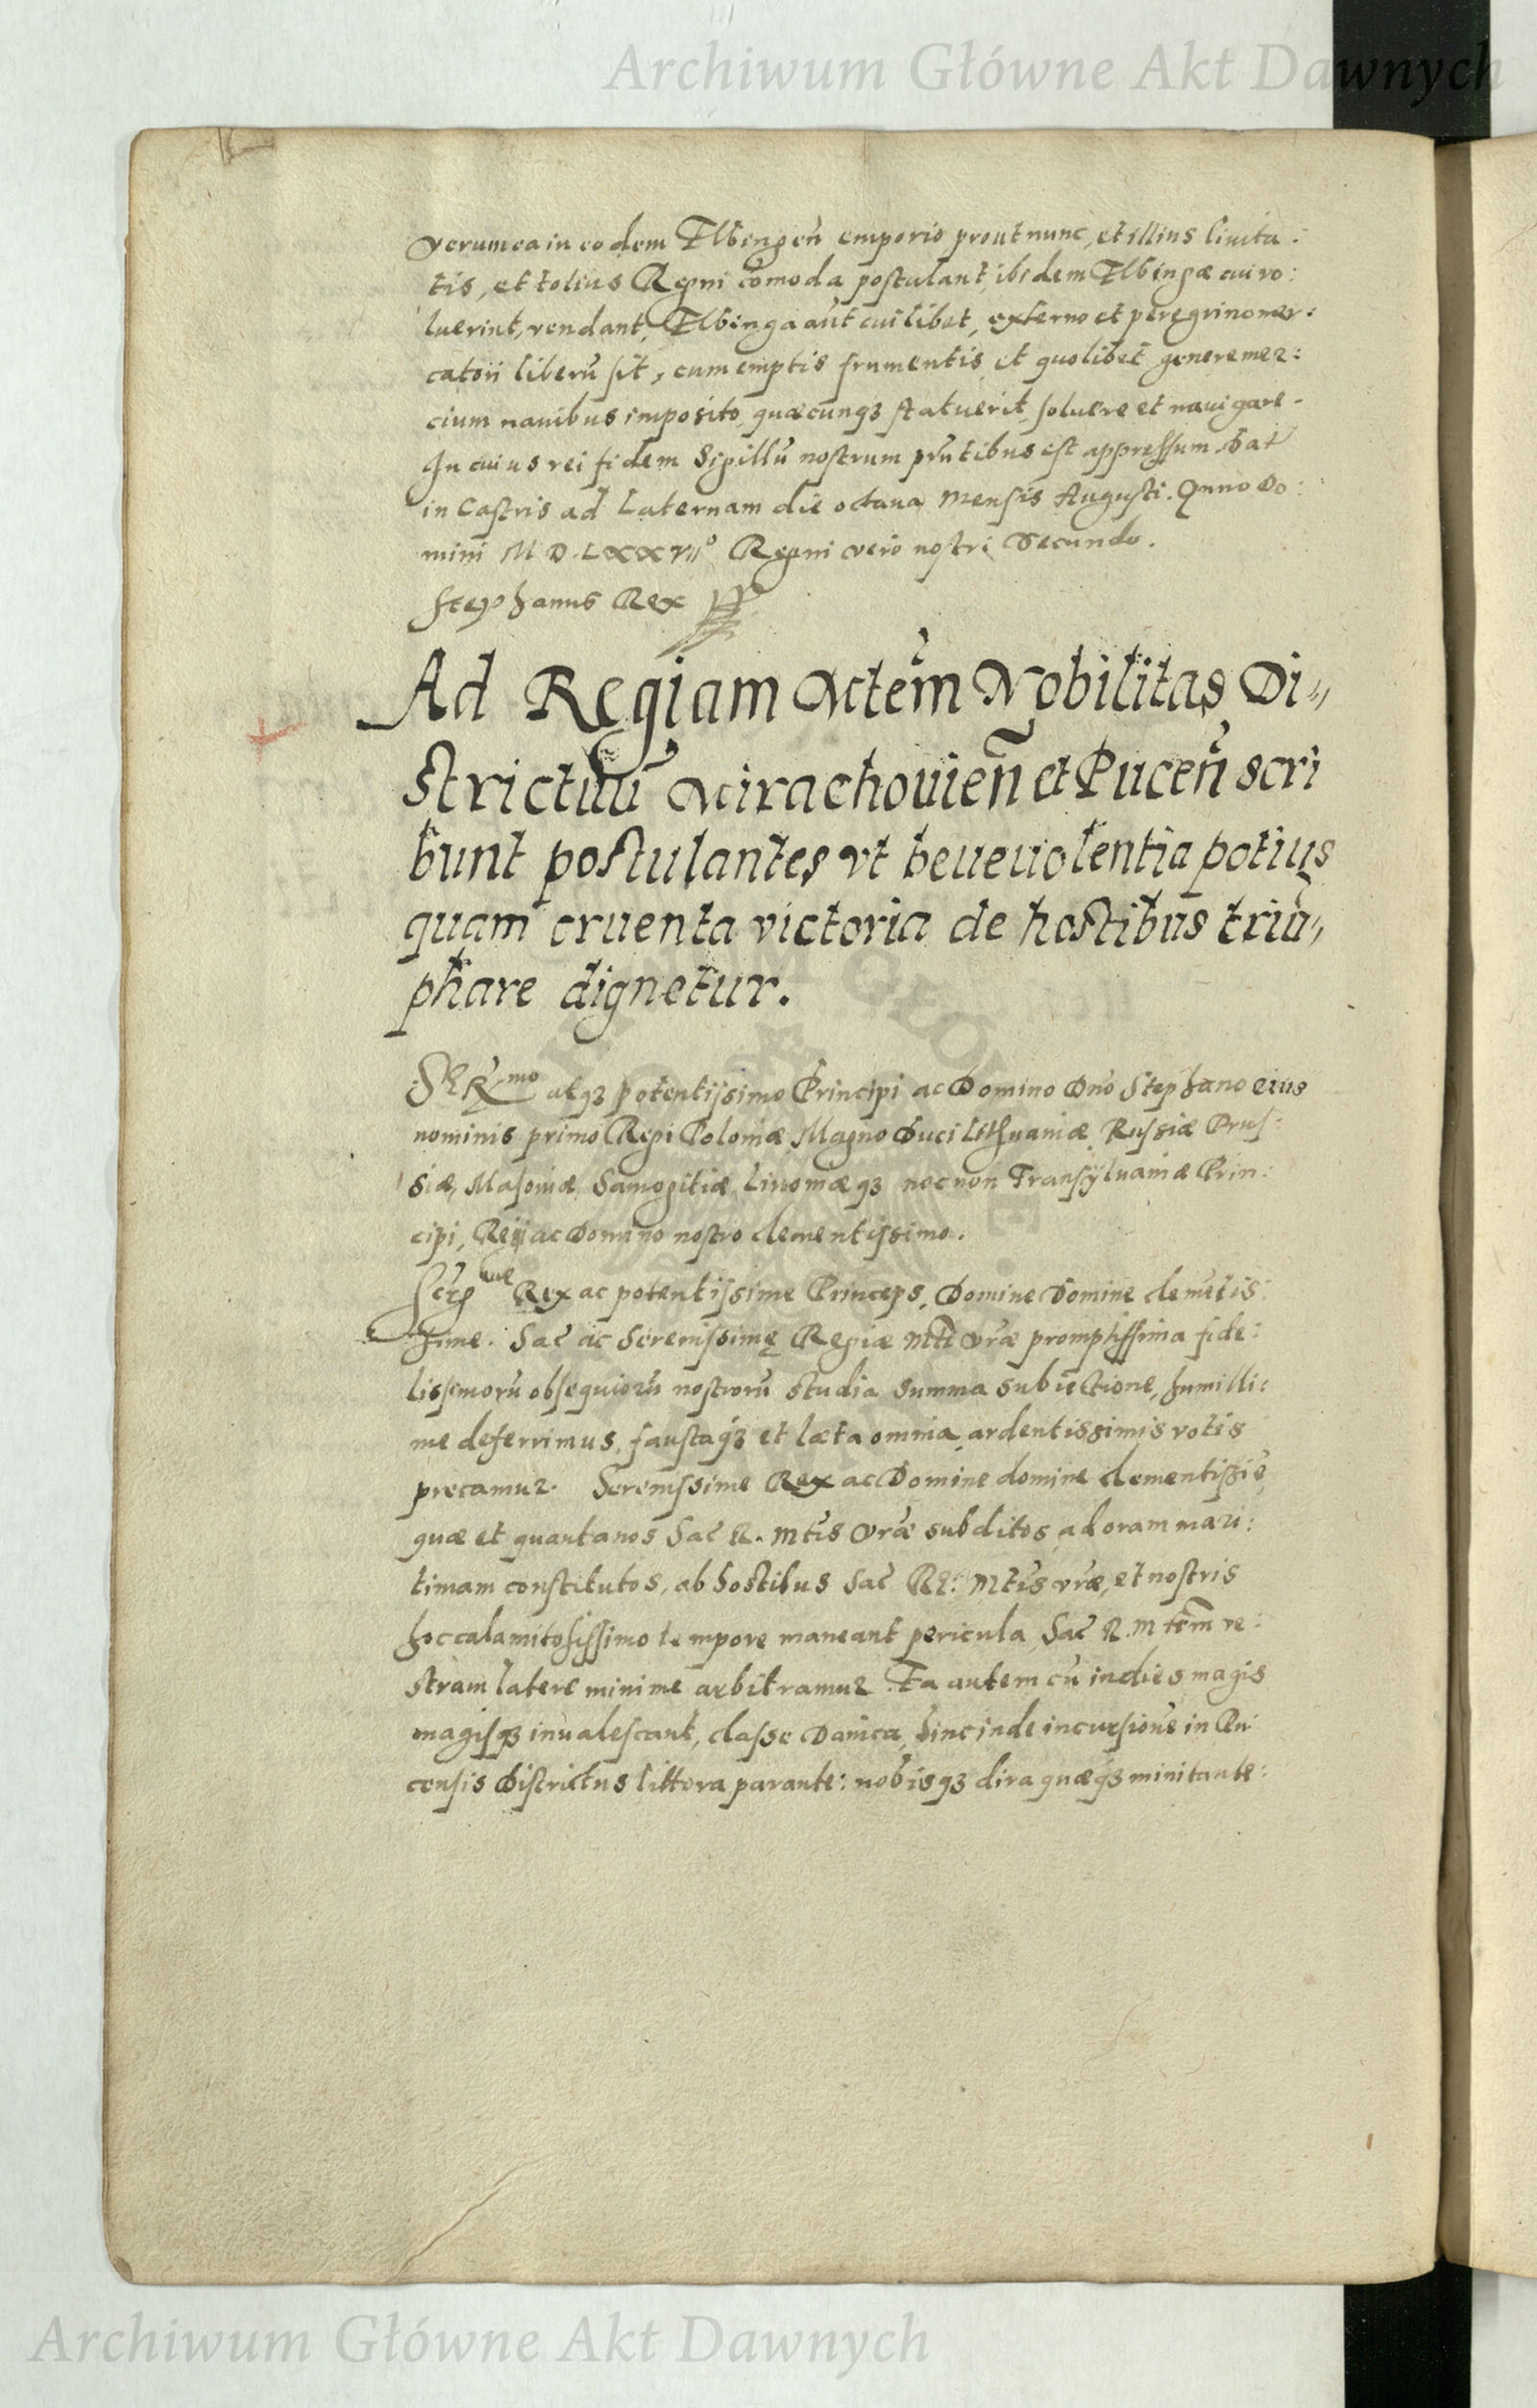 Archiwum Główne Akt Dawnych
verum ea in eodem Elbingeñ emporio prout nunc, et illius Civita:
tis, et totius Regni cõmoda postulant, ibidem Elbingæ cui vo:
luerint, vendant, Elbinga aũt cuilibet, externo et peregrino mer:
catori liberũ sit, cum emptis frumentis et quolibet genere mer:
cium navibus imposito, quæcunqȝ statuerit, soluere et navigare.
In cuius rei fidem Sigillũ nostrum pr̃ntibus est appressum. Dat̃
in Castris ad Laternam die octava Mensis Augusti. Anno Do:
mini M D. LXXVIIº Regni vero nostri Secundo.
Stephanus Rex
Ad Regiam Mtẽm Nobilitas Di„
strictuũ Mirachovieñ et Puceñ scri
bunt postulantes vt beuevolentia potius
quam cruenta victoria de hostibus triũ„
phare dignetur.
Sermo atqȝ potentissimo Principi ac Domino Dño Stephano eius
nominis primo Regi Poloniæ, Magno Duci Lithuaniæ, Russiæ Prus:
siæ, Masoviæ, Samogitiæ, Livoniæqȝ nec non Transÿlvaniæ Prin:
cipi, Regi ac Domino nostro clementissimo.
Rex ac potentissime Princeps, Domine Domine clemẽtis:
sime. Sac̃ ac Serenissimę Regiæ Mtĩ vr̃æ promptissima fide:
lissimorũ obsequiorũ nostrorũ studia summa subiectione, humilli:
me deferrimus, faustaqȝ et læta omnia ardentissimis votis
precamur. Serenissime Rex ac Domine domine clementissiẽ,
quæ et quanta nos Sac̃ R. Mtĩs vr̃æ subditos, ad oram mari:
timam constitutos, ab hostibus Sac̃ Re: Mtĩs vr̃æ, et nostris
hoc calamitosissimo tempore maneant pericula, Sac̃ R. Mtẽm ve:
stram latere minime arbitramur. Ea autem cũ indies magis
magisqȝ invalescant, classe Danica, hinc inde incursionẽ in Pu:
censis Districtus littora parante: nobisqȝ dira quæqȝ minitante:
Archiwum Główne Akt Dawnych